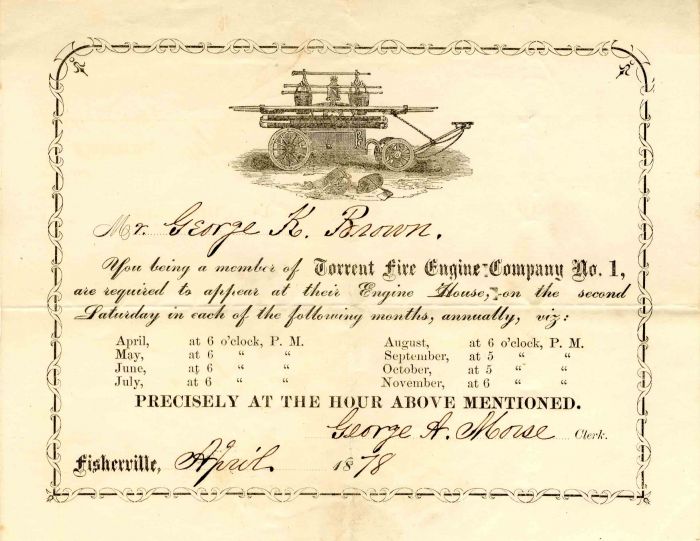 Mr. George K. Brown.
You being a member of Torrent Fire Engine Company No. 1,
are required to appear at their Engine House, on the second
Saturday in each of the following months, annually, viz:
April, at 6 o'clock, P. M. August, at 6 o'clock, P. M.
May, at 6 " " September, at 5 " "
June, at 6 " " October, at 5 " "
July, at 6 " " November, at 6 " "
PRECISELY AT THE HOUR ABOVE MENTIONED.
George A. Morse Clerk.
Fisherville, April 1878